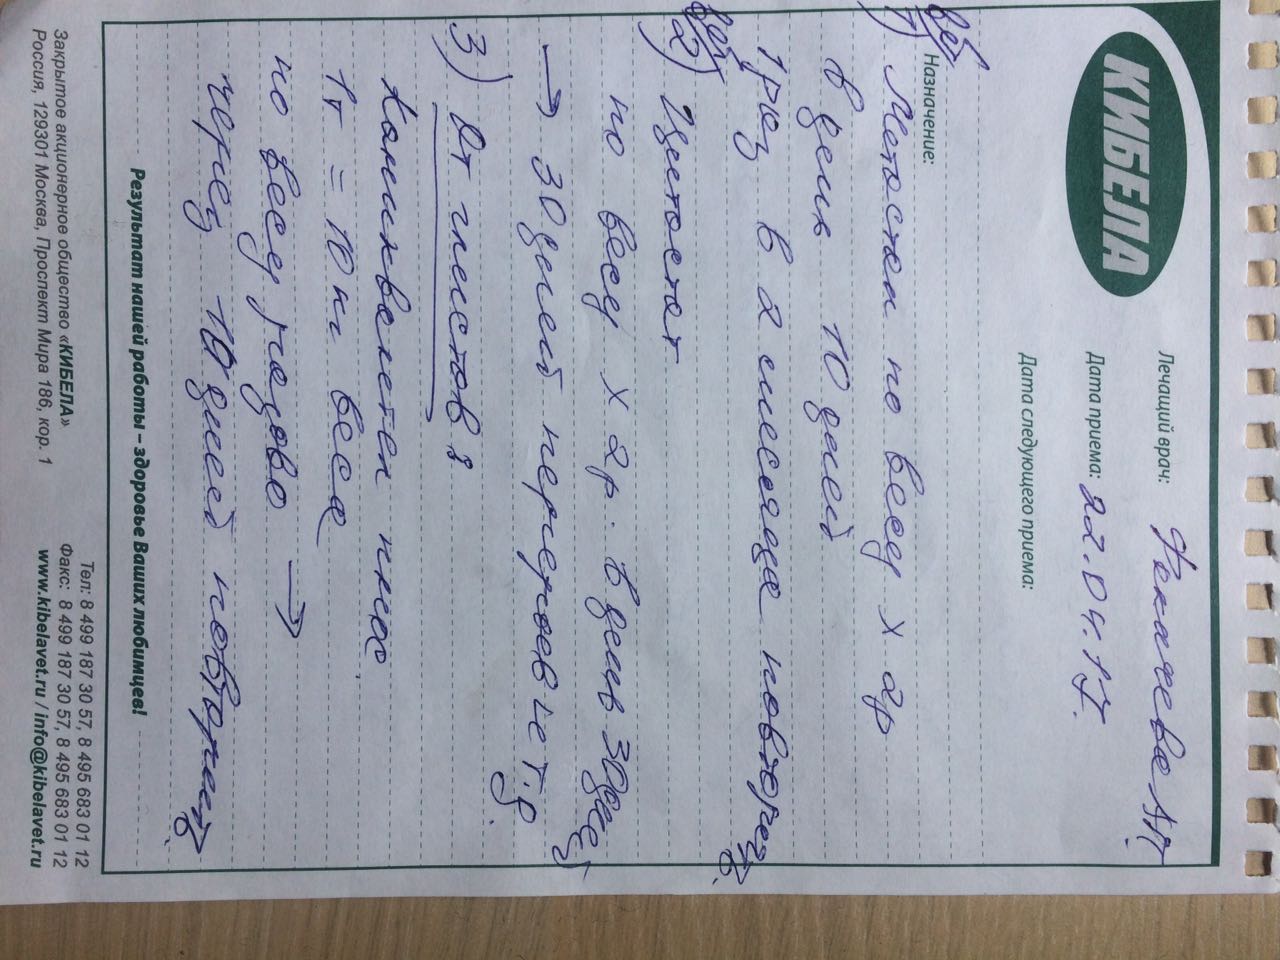 КИБЕЛА
Лечащий врач:
Дата приема: 22.04.17.
Дата следующего приема:
Назначение:
вет
1) по весу х 2р
в день 10 дней
1 раз в 2 месяца повторяя.
вет
2) Цистостат
по весу х 2р. в день 30 дней
→ 30 дней перерыв и т.д.
3) От глистов:
Каниквантел плюс
1т = 10 кг веса
по весу разово →
через 10 дней повторить.
Результат нашей работы – здоровье Ваших любимцев!
Закрытое акционерное общество «КИБЕЛА»
Россия, 129301 Москва, Проспект Мира 186, кор. 1
Тел: 8 499 187 30 57, 8 495 683 01 12
Факс: 8 499 187 30 57, 8 495 683 01 12
www.kibelavet.ru / info@kibelavet.ru